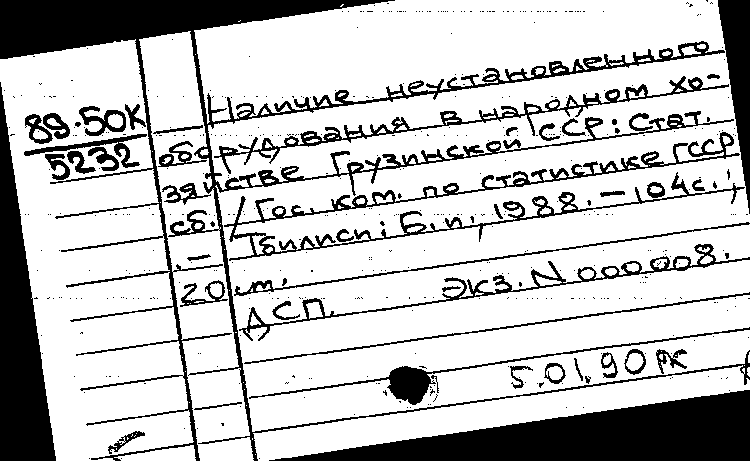 89.50К
5232
Наличие неустановленного
оборудования в народном хо-
зяйстве Грузинской ССР: Стат.
сб. / Гос. ком. по статистике ГССР
.— Тбилиси: Б.и., 1988. — 104с.;
20 см.
ДСП. Экз. N 000008.
5.01.90 РК